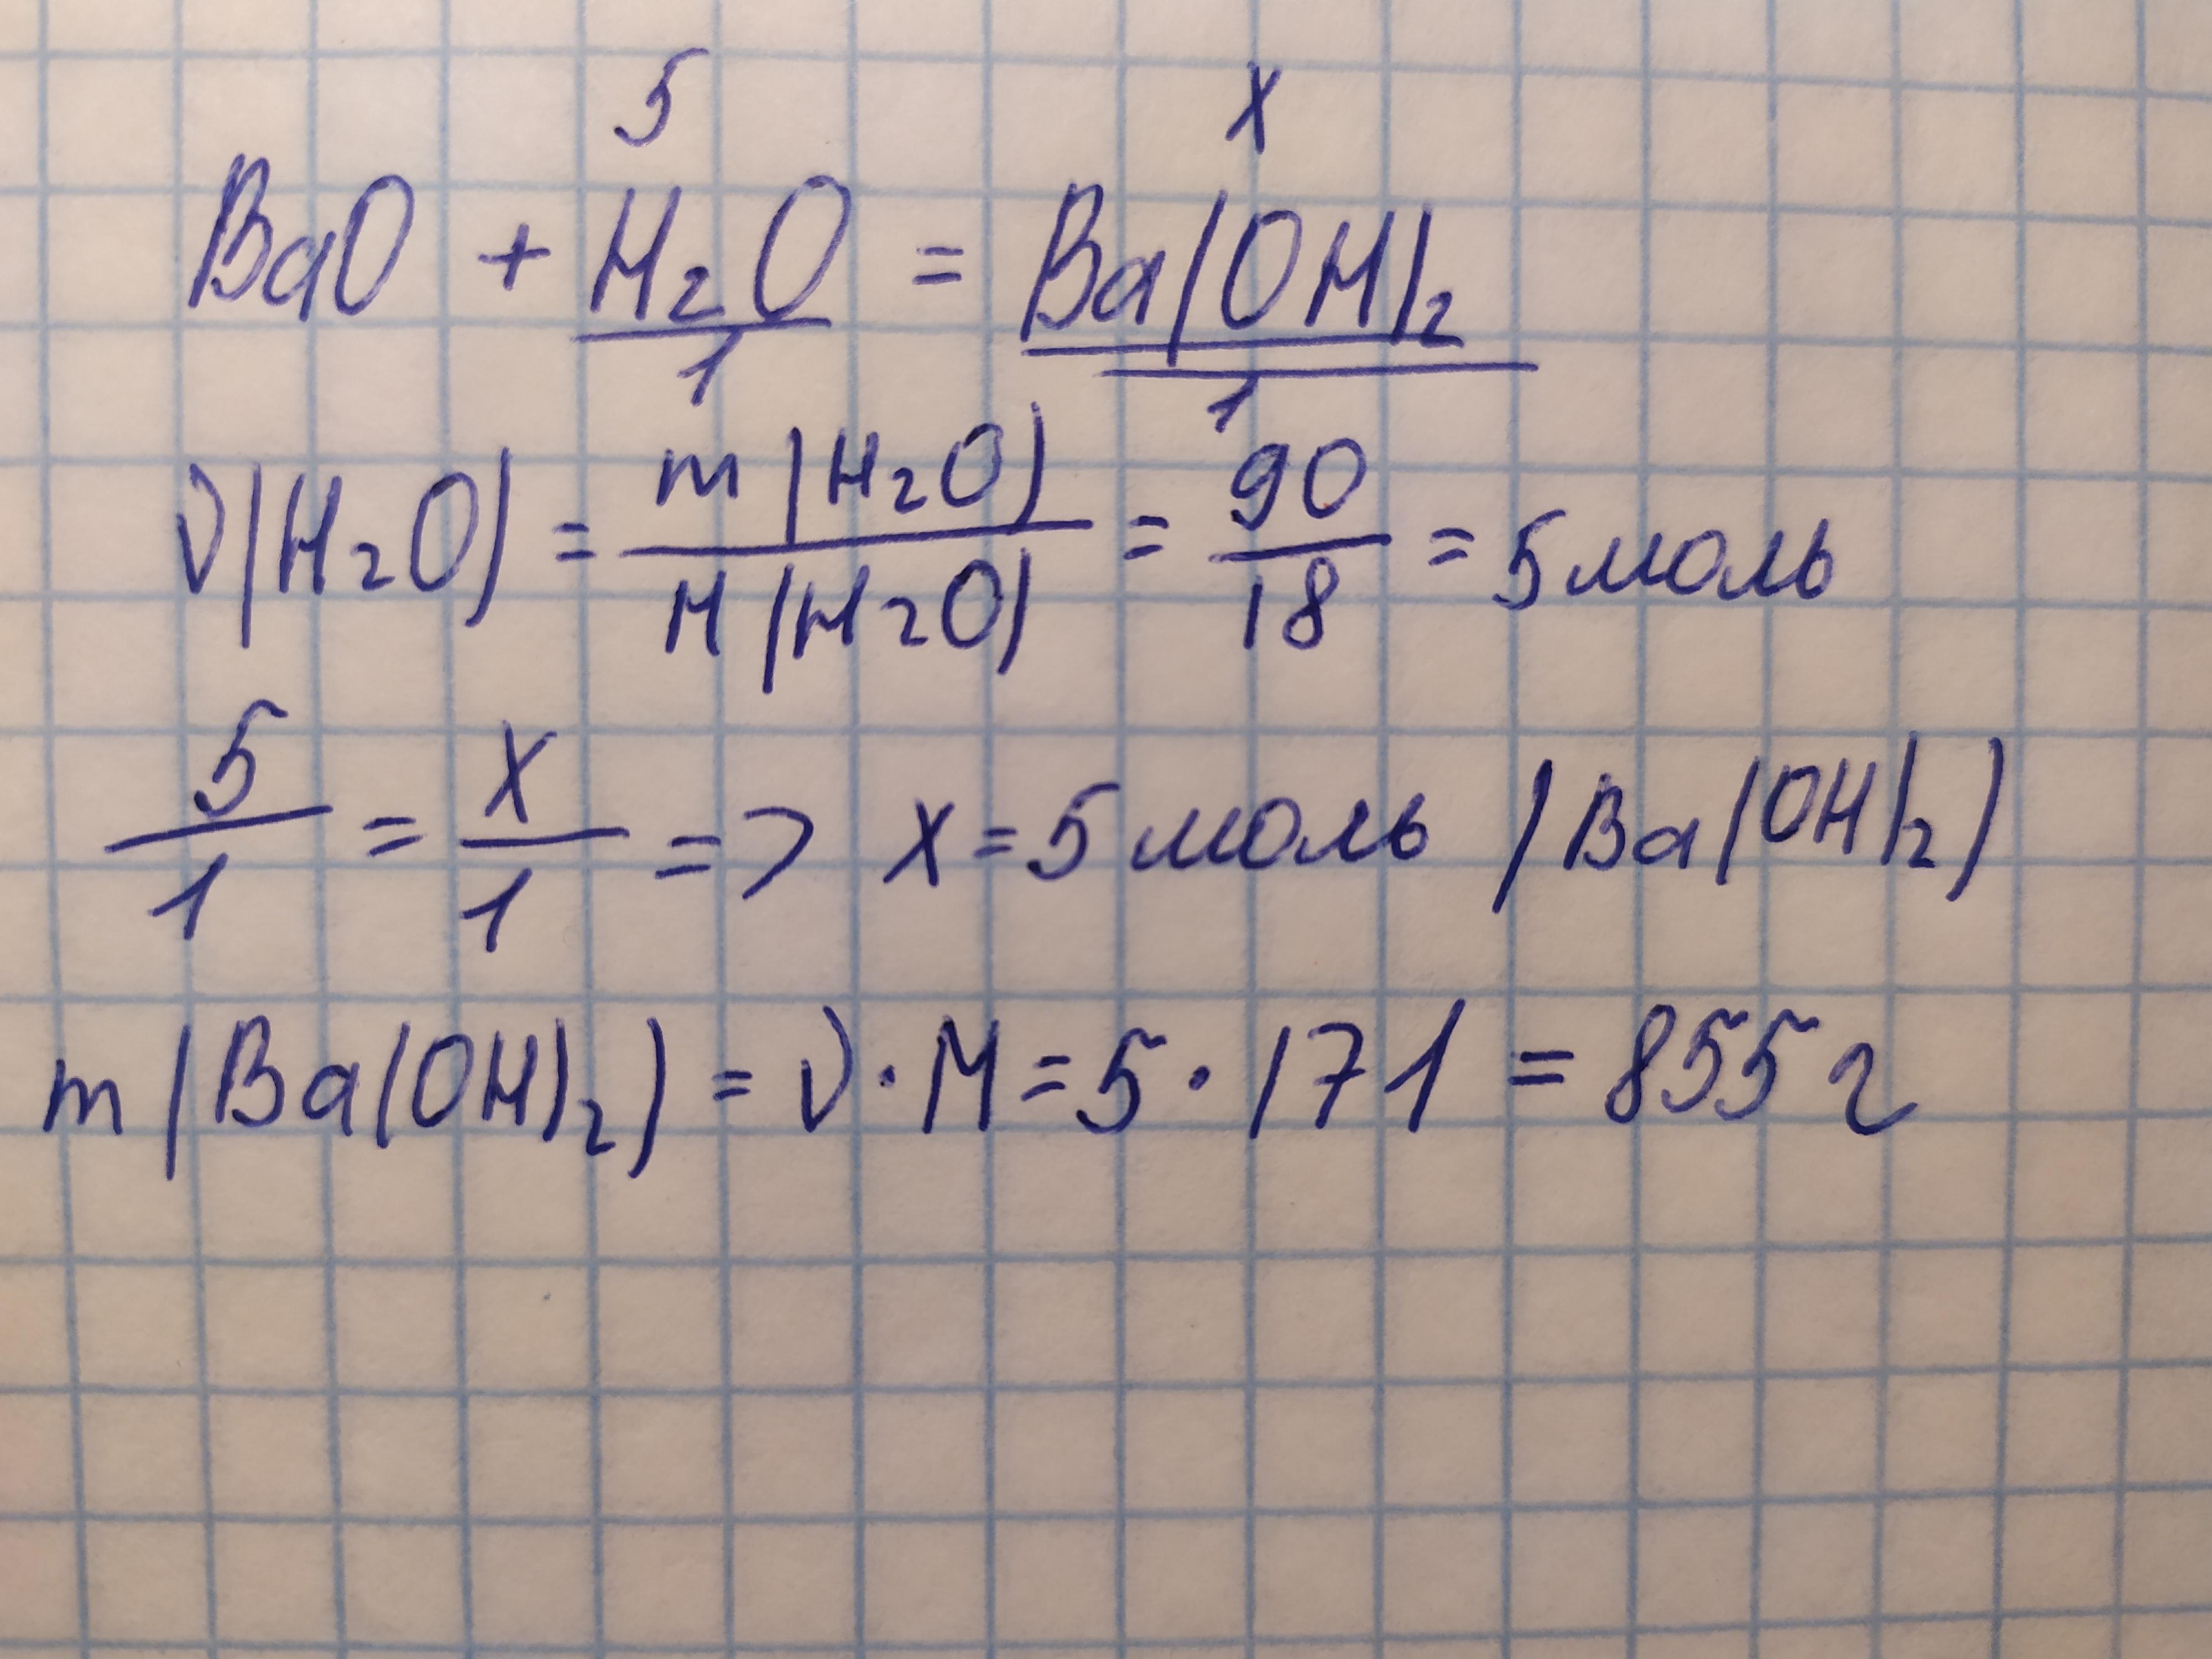 5 x
BaO + H₂O = Ba(OH)₂
1 1
ν(H₂O) = m(H₂O)/M(H₂O) = 90/18 = 5 моль
5/1 = x/1 => x = 5 моль (Ba(OH)₂)
m(Ba(OH)₂) = ν · M = 5 · 171 = 855 г